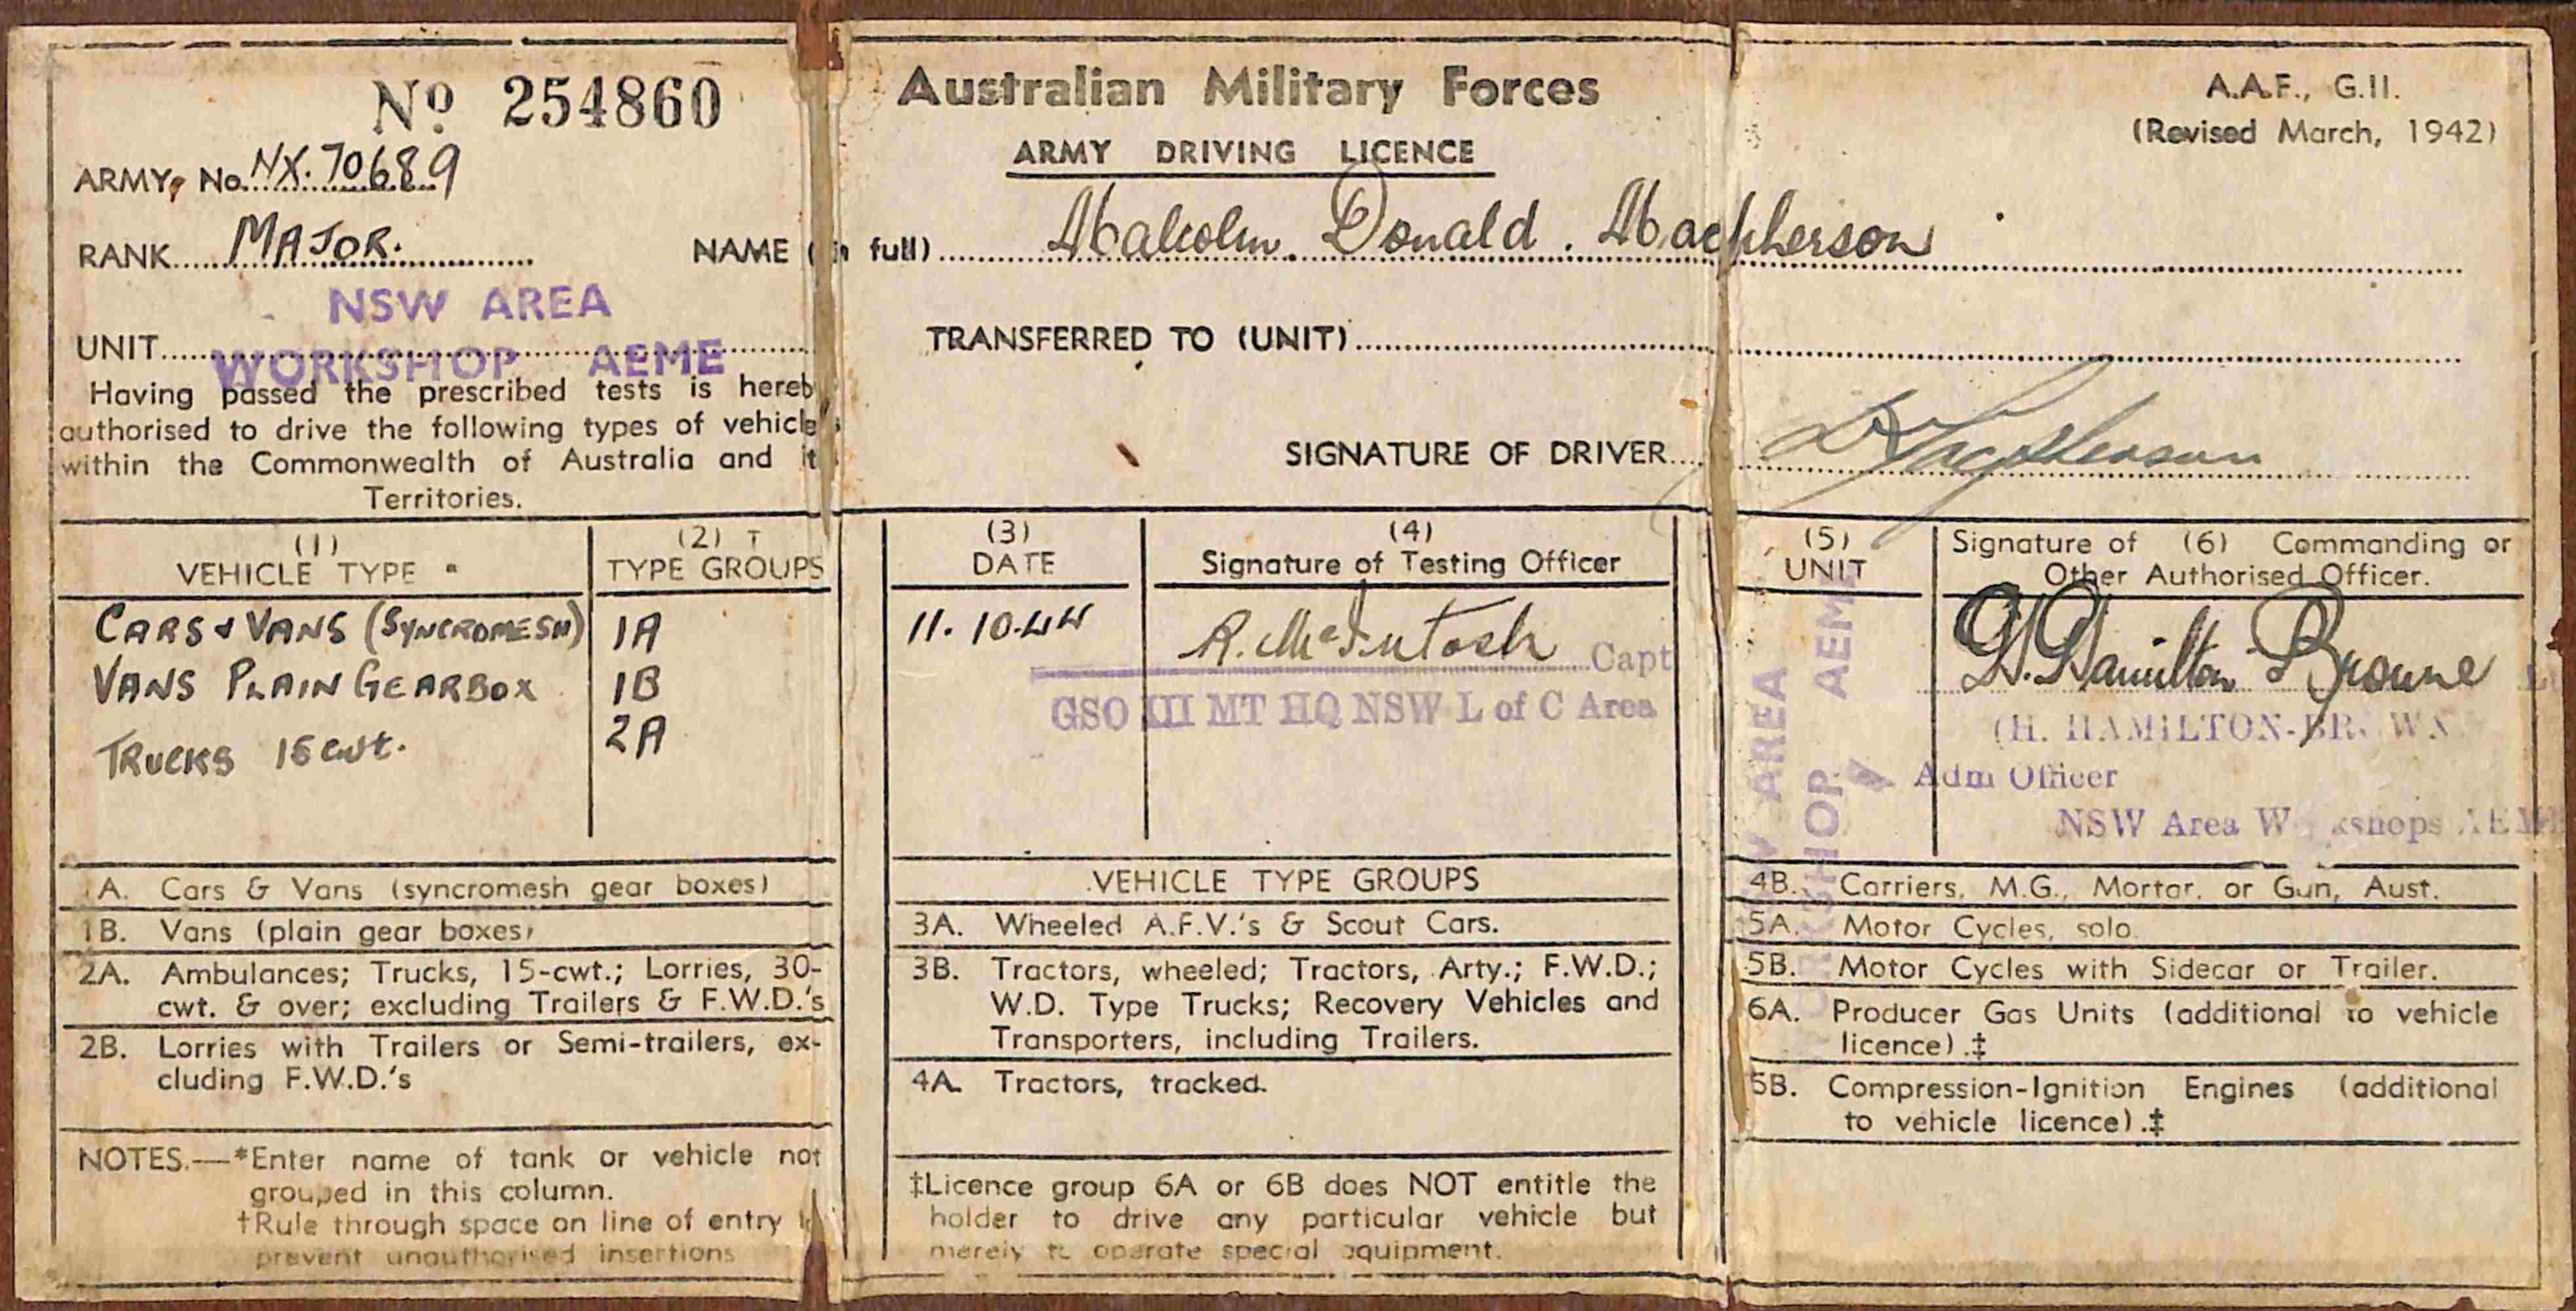 No 254860
Australian Military Forces
A.A.F., G.II.
(Revised March, 1942)
ARMY DRIVING LICENCE
ARMY, No. NX. 70689
RANK MAJOR. NAME (in full) Malcolm Donald Macpherson
NSW AREA
UNIT TRANSFERRED TO (UNIT)
WORKSHOP AEME
Having passed the prescribed tests is hereb
authorised to drive the following types of vehicles
within the Commonwealth of Australia and its
Territories.
SIGNATURE OF DRIVER Macpherson
(1)
VEHICLE TYPE *
(2) †
TYPE GROUPS
CARS & VANS (SYNCROMESH) 1A
VANS PLAIN GEARBOX 1B
TRUCKS 15 cwt. 2A
(3)
DATE
11.10.44
(4)
Signature of Testing Officer
R. McIntosh
Capt
GSO III MT HQ NSW L of C Area
(5)
UNIT
AREA
SHOP AEM
Signature of (6) Commanding or
Other Authorised Officer.
H. Hamilton Browne
(H. HAMILTON-BR WN
Adm Officer
NSW Area W kshops AEM
1A. Cars & Vans (syncromesh gear boxes)
1B. Vans (plain gear boxes)
2A. Ambulances; Trucks, 15-cwt.; Lorries, 30-
cwt. & over; excluding Trailers & F.W.D.'s
2B. Lorries with Trailers or Semi-trailers, ex-
cluding F.W.D.'s
NOTES.—*Enter name of tank or vehicle not
grouped in this column.
†Rule through space on line of entry to
prevent unauthorised insertions
VEHICLE TYPE GROUPS
3A. Wheeled A.F.V.'s & Scout Cars.
3B. Tractors, wheeled; Tractors, Arty.; F.W.D.;
W.D. Type Trucks; Recovery Vehicles and
Transporters, including Trailers.
4A. Tractors, tracked.
‡Licence group 6A or 6B does NOT entitle the
holder to drive any particular vehicle but
merely to operate special equipment.
4B. Carriers, M.G., Mortar, or Gun, Aust.
5A. Motor Cycles, solo.
5B. Motor Cycles with Sidecar or Trailer.
6A. Producer Gas Units (additional to vehicle
licence).‡
6B. Compression-Ignition Engines (additional
to vehicle licence).‡